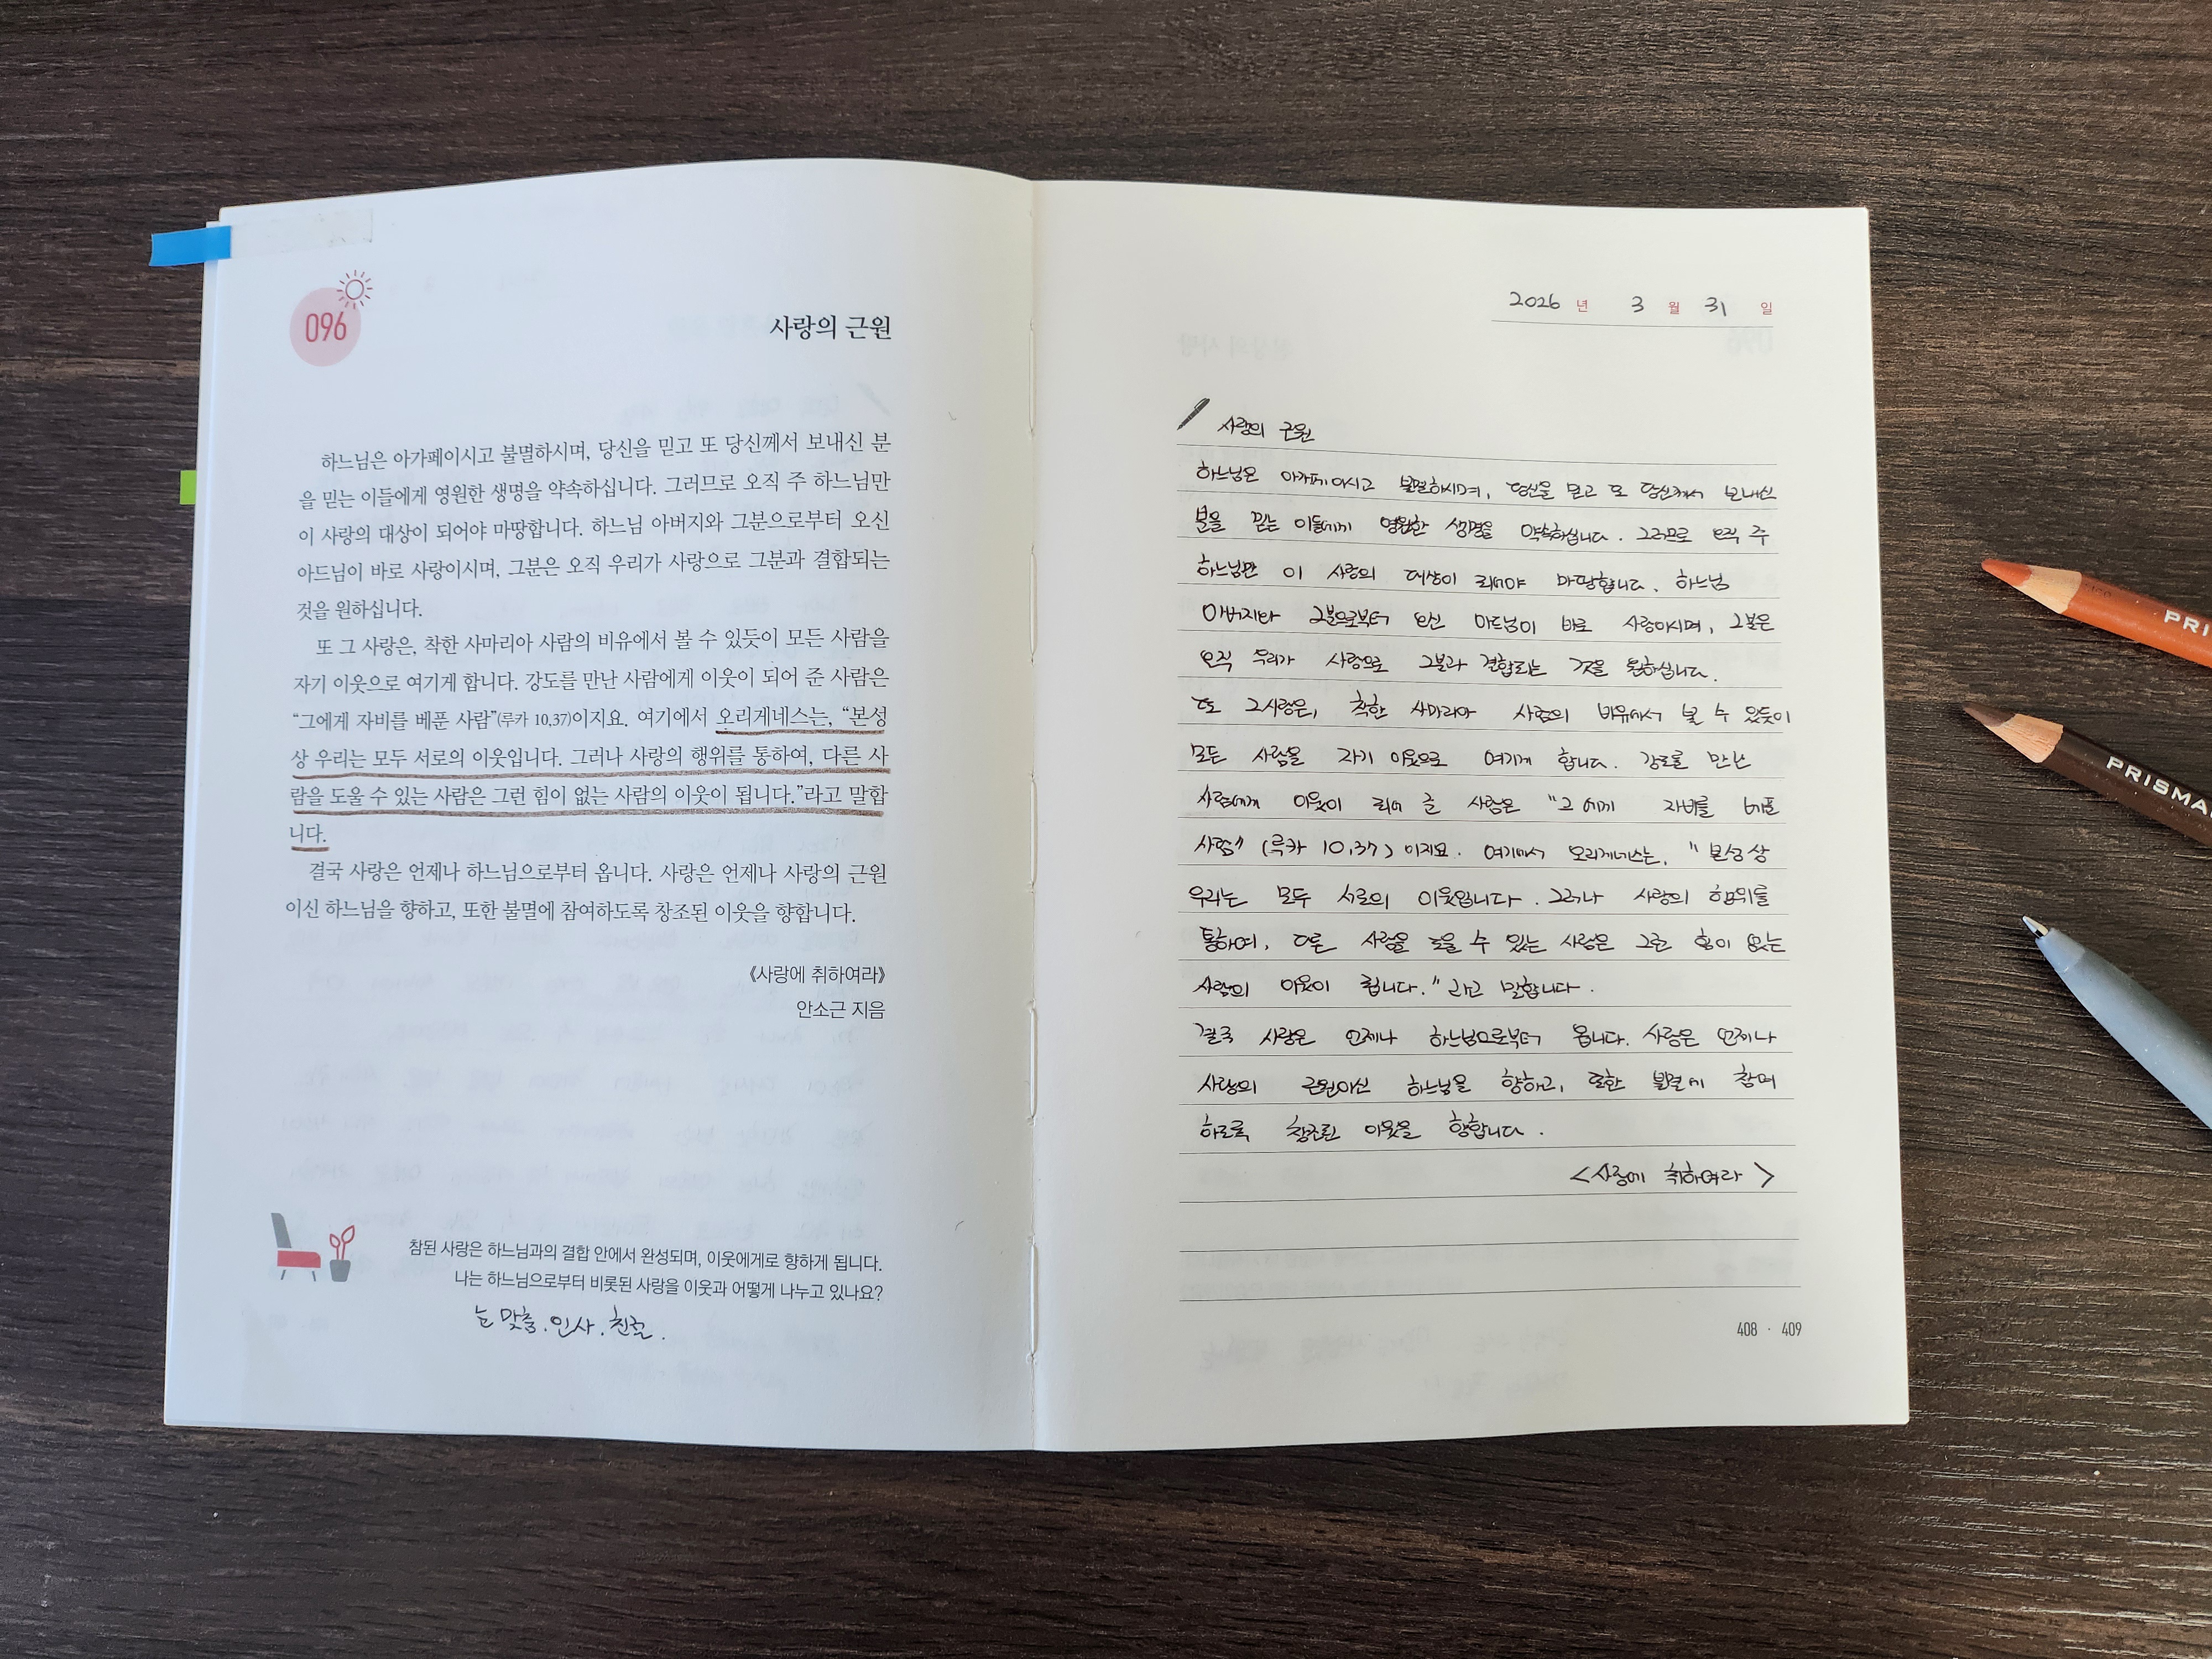 096
사랑의 근원
하느님은 아가페이시고 불멸하시며, 당신을 믿고 또 당신께서 보내신 분
을 믿는 이들에게 영원한 생명을 약속하십니다. 그러므로 오직 주 하느님만
이 사랑의 대상이 되어야 마땅합니다. 하느님 아버지와 그분으로부터 오신
아드님이 바로 사랑이시며, 그분은 오직 우리가 사랑으로 그분과 결합되는
것을 원하십니다.
또 그 사랑은, 착한 사마리아 사람의 비유에서 볼 수 있듯이 모든 사람을
자기 이웃으로 여기게 합니다. 강도를 만난 사람에게 이웃이 되어 준 사람은
“그에게 자비를 베푼 사람”(루카 10,37)이지요. 여기에서 오리게네스는, “본성
상 우리는 모두 서로의 이웃입니다. 그러나 사랑의 행위를 통하여, 다른 사
람을 도울 수 있는 사람은 그런 힘이 없는 사람의 이웃이 됩니다.”라고 말합
니다.
결국 사랑은 언제나 하느님으로부터 옵니다. 사랑은 언제나 사랑의 근원
이신 하느님을 향하고, 또한 불멸에 참여하도록 창조된 이웃을 향합니다.
《사랑에 취하여라》
안소근 지음
참된 사랑은 하느님과의 결합 안에서 완성되며, 이웃에게로 향하게 됩니다.
나는 하느님으로부터 비롯된 사랑을 이웃과 어떻게 나누고 있나요?
눈 맞춤. 인사. 친절.
2026 년 3 월 31 일
사랑의 근원
하느님은 아가페이시고 불멸하시며, 당신을 믿고 또 당신께서 보내신
분을 믿는 이들에게 영원한 생명을 약속하십니다. 그러므로 오직 주
하느님만 이 사랑의 대상이 되어야 마땅합니다. 하느님
아버지와 그분으로부터 오신 아드님이 바로 사랑이시며, 그분은
오직 우리가 사랑으로 그분과 결합되는 것을 원하십니다.
또 그사랑은, 착한 사마리아 사람의 비유에서 볼 수 있듯이
모든 사람을 자기 이웃으로 여기게 합니다. 강도를 만난
사람에게 이웃이 되어 준 사람은 "그에게 자비를 베푼
사람" (루카 10,37) 이지요. 여기에서 오리게네스는, "본성상
우리는 모두 서로의 이웃입니다. 그러나 사랑의 행위를
통하여, 다른 사람을 도울 수 있는 사람은 그런 힘이 없는
사람의 이웃이 됩니다."라고 말합니다.
결국 사랑은 언제나 하느님으로부터 옵니다. 사랑은 언제나
사랑의 근원이신 하느님을 향하고, 또한 불멸에 참여
하도록 창조된 이웃을 향합니다.
<사랑에 취하여라>
408 · 409
PRI
PRISMA